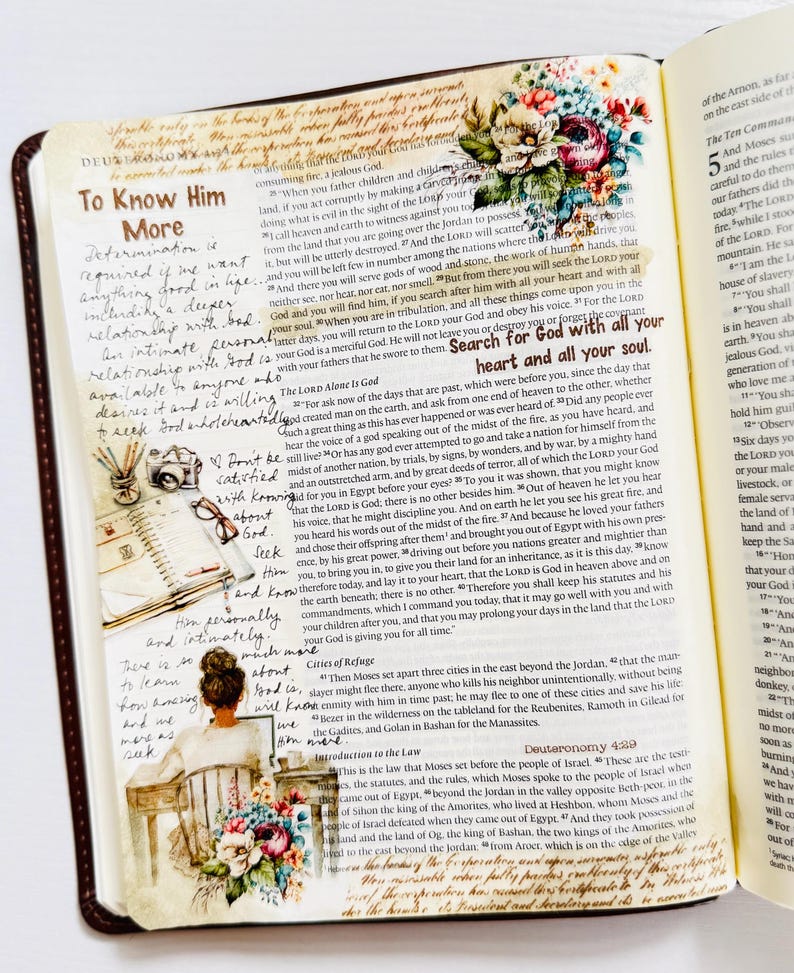 ible only on the books of the Corporation and upon surrend
this certificate
has caused this certificate
DEUTERONOMY 4:24
To Know Him
More
Determination is
required if we want
anything good in life...
including a deeper
relationship with God.
An intimate personal
relationship with God is
available to anyone who
desires it and is willing
to seek God wholeheartedly.
♡ Don't be
satisfied
with knowing
about
God.
Seek
Him
and know
Him personally
and intimately.
There is so much more
to learn about
how amazing God is,
and we will know
more as we
seek Him more.
of anything that the LORD your God has forbidden you. 24 For the LORD
consuming fire, a jealous God.
25 “When you father children and children's children, and have grown old in the
land, if you act corruptly by making a carved image in the form of anything, and by
doing what is evil in the sight of the LORD your God, so as to provoke him to anger,
26 I call heaven and earth to witness against you today, that you will soon utterly perish
from the land that you are going over the Jordan to possess. You will not live long in
it, but will be utterly destroyed. 27 And the LORD will scatter you among the peoples,
and you will be left few in number among the nations where the LORD will drive you.
28 And there you will serve gods of wood and stone, the work of human hands, that
neither see, nor hear, nor eat, nor smell. 29 But from there you will seek the LORD your
God and you will find him, if you search after him with all your heart and with all
your soul. 30 When you are in tribulation, and all these things come upon you in the
latter days, you will return to the LORD your God and obey his voice. 31 For the LORD
your God is a merciful God. He will not leave you or destroy you or forget the covenant
with your fathers that he swore to them.
Search for God with all your
heart and all your soul.
The LORD Alone Is God
32 “For ask now of the days that are past, which were before you, since the day that
God created man on the earth, and ask from one end of heaven to the other, whether
such a great thing as this has ever happened or was ever heard of. 33 Did any people ever
hear the voice of a god speaking out of the midst of the fire, as you have heard, and
still live? 34 Or has any god ever attempted to go and take a nation for himself from the
midst of another nation, by trials, by signs, by wonders, and by war, by a mighty hand
and an outstretched arm, and by great deeds of terror, all of which the LORD your God
did for you in Egypt before your eyes? 35 To you it was shown, that you might know
that the LORD is God; there is no other besides him. 36 Out of heaven he let you hear
his voice, that he might discipline you. And on earth he let you see his great fire, and
you heard his words out of the midst of the fire. 37 And because he loved your fathers
and chose their offspring after them1 and brought you out of Egypt with his own pres-
ence, by his great power, 38 driving out before you nations greater and mightier than
you, to bring you in, to give you their land for an inheritance, as it is this day, 39 know
therefore today, and lay it to your heart, that the LORD is God in heaven above and on
the earth beneath; there is no other. 40 Therefore you shall keep his statutes and his
commandments, which I command you today, that it may go well with you and with
your children after you, and that you may prolong your days in the land that the LORD
your God is giving you for all time.”
Cities of Refuge
41 Then Moses set apart three cities in the east beyond the Jordan, 42 that the man-
slayer might flee there, anyone who kills his neighbor unintentionally, without being
at enmity with him in time past; he may flee to one of these cities and save his life:
43 Bezer in the wilderness on the tableland for the Reubenites, Ramoth in Gilead for
the Gadites, and Golan in Bashan for the Manassites.
Introduction to the Law
Deuteronomy 4:29
44 This is the law that Moses set before the people of Israel. 45 These are the testi-
monies, the statutes, and the rules, which Moses spoke to the people of Israel when
they came out of Egypt, 46 beyond the Jordan in the valley opposite Beth-peor, in the
land of Sihon the king of the Amorites, who lived at Heshbon, whom Moses and the
people of Israel defeated when they came out of Egypt. 47 And they took possession of
his land and the land of Og, the king of Bashan, the two kings of the Amorites, who
lived to the east beyond the Jordan; 48 from Aroer, which is on the edge of the Valley
1 Hebrew
on the books of the Corporation and upon surrender
this certificate
the corporation has caused this certificate to In Witness
its President and Secretary and its
of the Arnon, as far a
on the east side of th
The Ten Comman
5 And Moses sum
and the rules th
careful to do them
our fathers did the
today. 4 The LORD
fire, 5 while I stood
of the LORD. For
mountain. He sa
6 “‘I am the L
house of slavery
7 “‘You shall
8 “‘You shall
is in heaven abo
earth. 9 You sha
jealous God, vi
generation of t
who love me a
11 “‘You sha
hold him guilt
12 “‘Observ
13 Six days yo
the LORD you
or your male
livestock, or
female serva
the land of
hand and a
keep the Sa
16 “‘Hon
that your d
your God i
17 “‘You
18 “‘And
19 “‘And
20 “‘And
21 “‘And
neighbor
donkey, o
22 “Th
midst of
no more
soon as
burning
24 And y
we hav
with m
will co
25
For
out of
1 Syriac;
death th